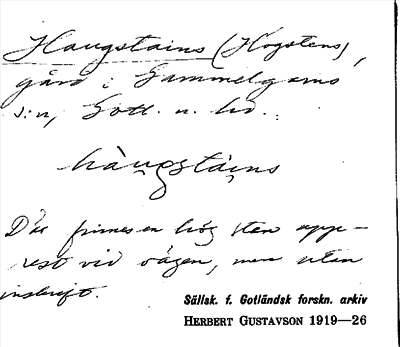 Haugstains (Hogstens),
gård i Gammelgarns
s:n, Gotl. n. hd.
hàu̯gstái̯ns
Där finnes en hög sten upp-
rest vid vägen, men utan
inskrift.
Sällsk. f. Gotländsk forskn. arkiv
HERBERT GUSTAVSON 1919—26